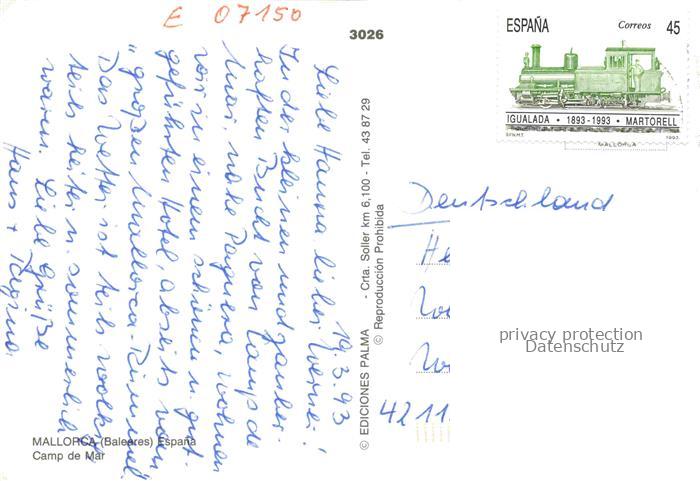 E 07150
3026
19.3.93
Liebe Hanna, lieber Werner!
In der kleinen und zauber-
haften Bucht von Camp de
Mar, nahe Paguera, wohnen
wir in einem schönen u. gut-
geführten Hotel, abseits vom
"großen Mallorca-Rummel".
Das Wetter ist teils wolkig
teils heiter u. sommerlich
warm. Liebe Grüße
Hans +
MALLORCA (Baleares) España
Camp de Mar
© EDICIONES PALMA - Crta. Soller km 6,100 - Tel. 43 87 29
© Reproducción Prohibida
ESPAÑA Correos 45
IGUALADA · 1893-1993 · MARTORELL
1993
MALLORCA
Deutschland
He
42 11
privacy protection
Datenschutz